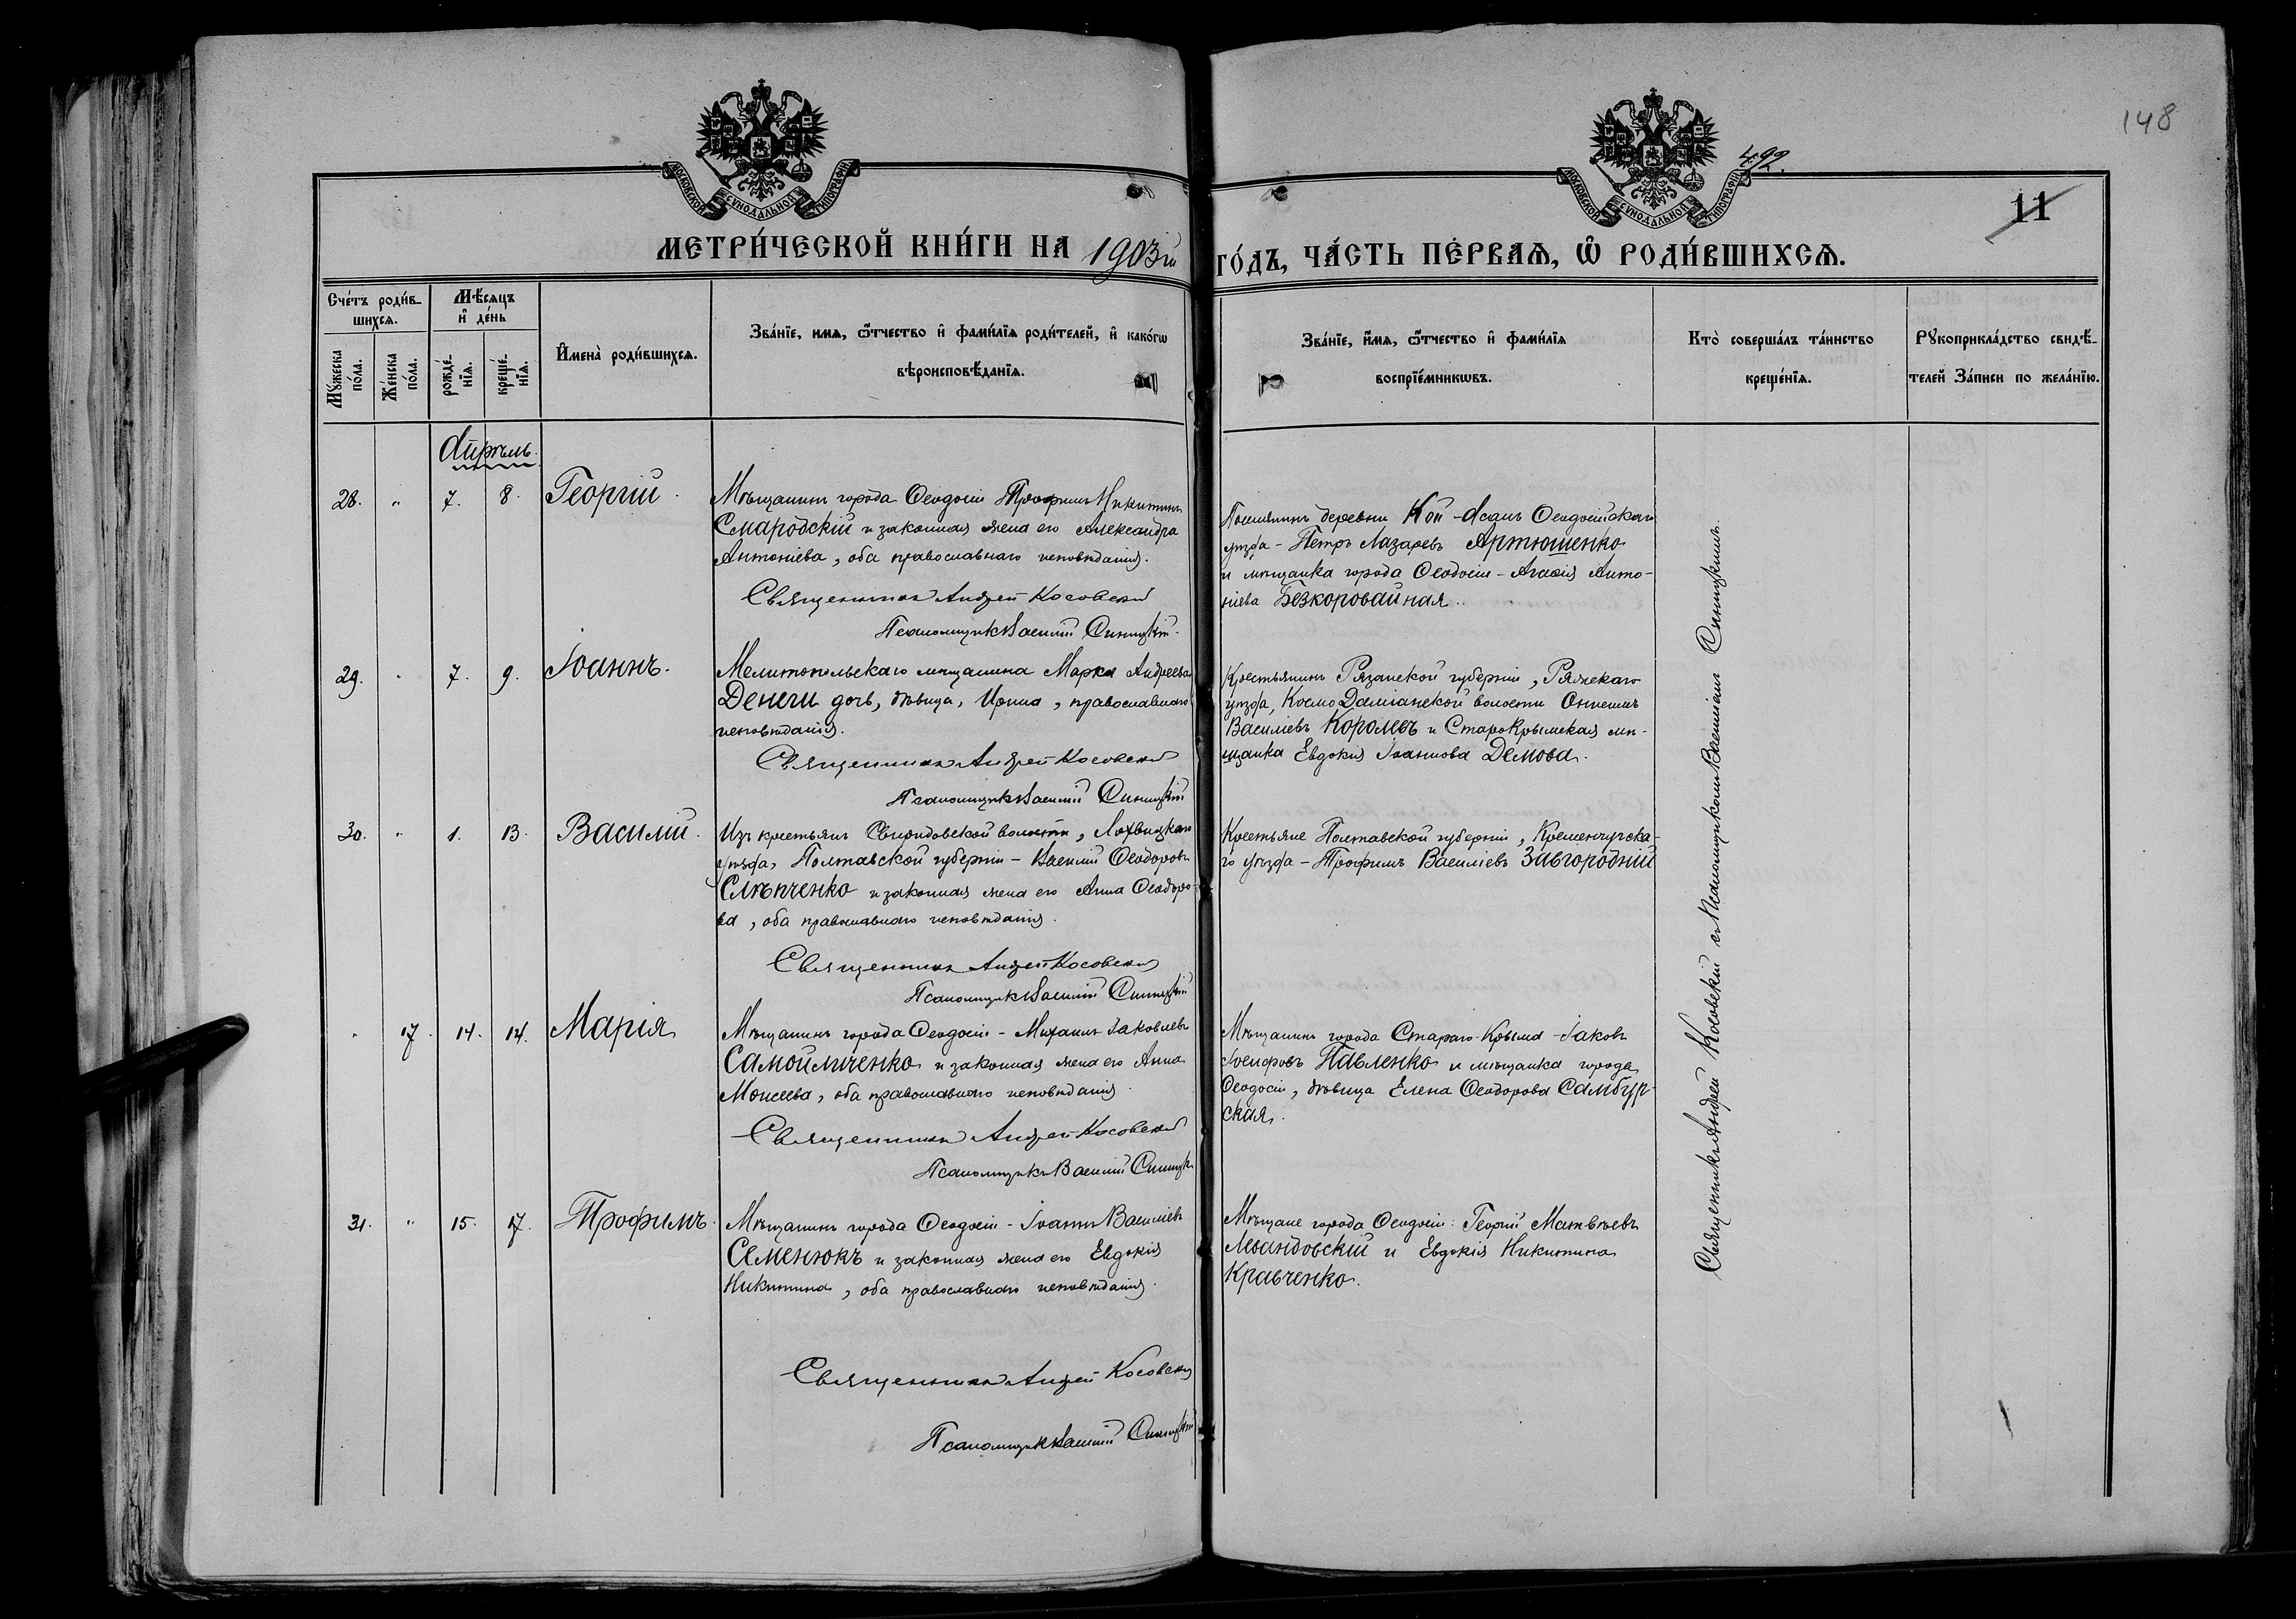 148
492.
11
МОСКОВСКОЙ СУНОДАЛЬНОЙ ТИПОГРАФІИ
МОСКОВСКОЙ СУНОДАЛЬНОЙ ТИПОГРАФІИ
МЕТРИ́ЧЕСКОЙ КНИ́ГИ НА 1903й ГО́ДЪ, ЧА́СТЬ ПЕ́РВАѦ, Ѡ҆ РОДИ́ВШИХСѦ.
Сче́тъ роди́в-
шихсѧ.
Мꙋ́жеска по́ла.
Же́нска по́ла.
Мѣ́сѧцъ
и҆ де́нь
рожде́-
нїѧ.
креще́-
нїѧ.
И҆мена̀ роди́вшихсѧ.
Зва́нїе, имѧ, ѻ҆́тчество и҆ фами́лїѧ роди́телей, и҆ како́гѡ
вѣроисповѣ́данїѧ.
Зва́нїе, и҆́мѧ, ѻ҆́тчество и҆ фами́лїѧ
воспрїе́мникѡвъ.
Кто̀ соверша́лъ та́инство
креще́нїѧ.
Рꙋкоприкла́дство свидѣ́-
телей За́писи по жела́нїю.
Апрѣль.
28. " 7. 8. Георгій.
Мѣщанинъ города Ѳеодосіи Трофимъ Никитинъ
Смародскій и законная жена его Александра
Антоніева, оба православнаго исповѣданія.
Священникъ Андрей Косовскій
Псаломщикъ Василій Синицкій.
Поселянинъ деревни Кой-Асанъ Ѳеодосійскаго
уѣзда - Петръ Лазаревъ Артюшенко
и мѣщанка города Ѳеодосіи - Агафія Анто-
ніева Безкоровайная.
29. " 7. 9. Іоаннъ.
Мелитопольскаго мѣщанина Марка Андреева
Денеги дочь, дѣвица, Ирина, православнаго
исповѣданія.
Священникъ Андрей Косовскій
Псаломщикъ Василій Синицкій
Крестьянинъ Рязанской губерніи, Ряжскаго
уѣзда, Космо Даміанской волости Онисимъ
Василіевъ Королевъ и Старокрымская мѣ-
щанка Евдокія Іоаннова Демова.
30. " 1. 13. Василій.
Изъ крестьянъ Свиридовской волости, Лохвицкаго
уѣзда, Полтавской губерніи - Василій Ѳеодоровъ
Слѣпченко и законная жена его Анна Ѳеодоро-
ва, оба православнаго исповѣданія.
Священникъ Андрей Косовскій
Псаломщикъ Василій Синицкій
Крестьяне Полтавской губерніи, Кременчугска-
го уѣзда - Трофимъ Василіевъ Завгородній
" 17. 14. 14. Марія
Мѣщанинъ города Ѳеодосіи - Михаилъ Іаковлевъ
Самойличенко и законная жена его Анна
Моисеева, оба православнаго исповѣданія.
Священникъ Андрей Косовскій
Псаломщикъ Василій Синицк
Мѣщанинъ города Стараго-Крыма - Іаковъ
Іосифовъ Павленко и мѣщанка города
Ѳеодосіи, дѣвица Елена Ѳеодорова Самбур-
ская.
31. " 15. 17. Трофимъ.
Мѣщанинъ города Ѳеодосіи - Іоаннъ Василіевъ
Семенюкъ и законная жена его Евдокія
Никитина, оба православнаго исповѣданія.
Священникъ Андрей Косовскій
Псаломщикъ Василій Синицкій
Мѣщане города Ѳеодосіи: Георгій Матвѣевъ
Левандовскій и Евдокія Никитина
Кравченко.
Священникъ Андрей Косовскій съ Псаломщикомъ Василіемъ Синицкимъ.